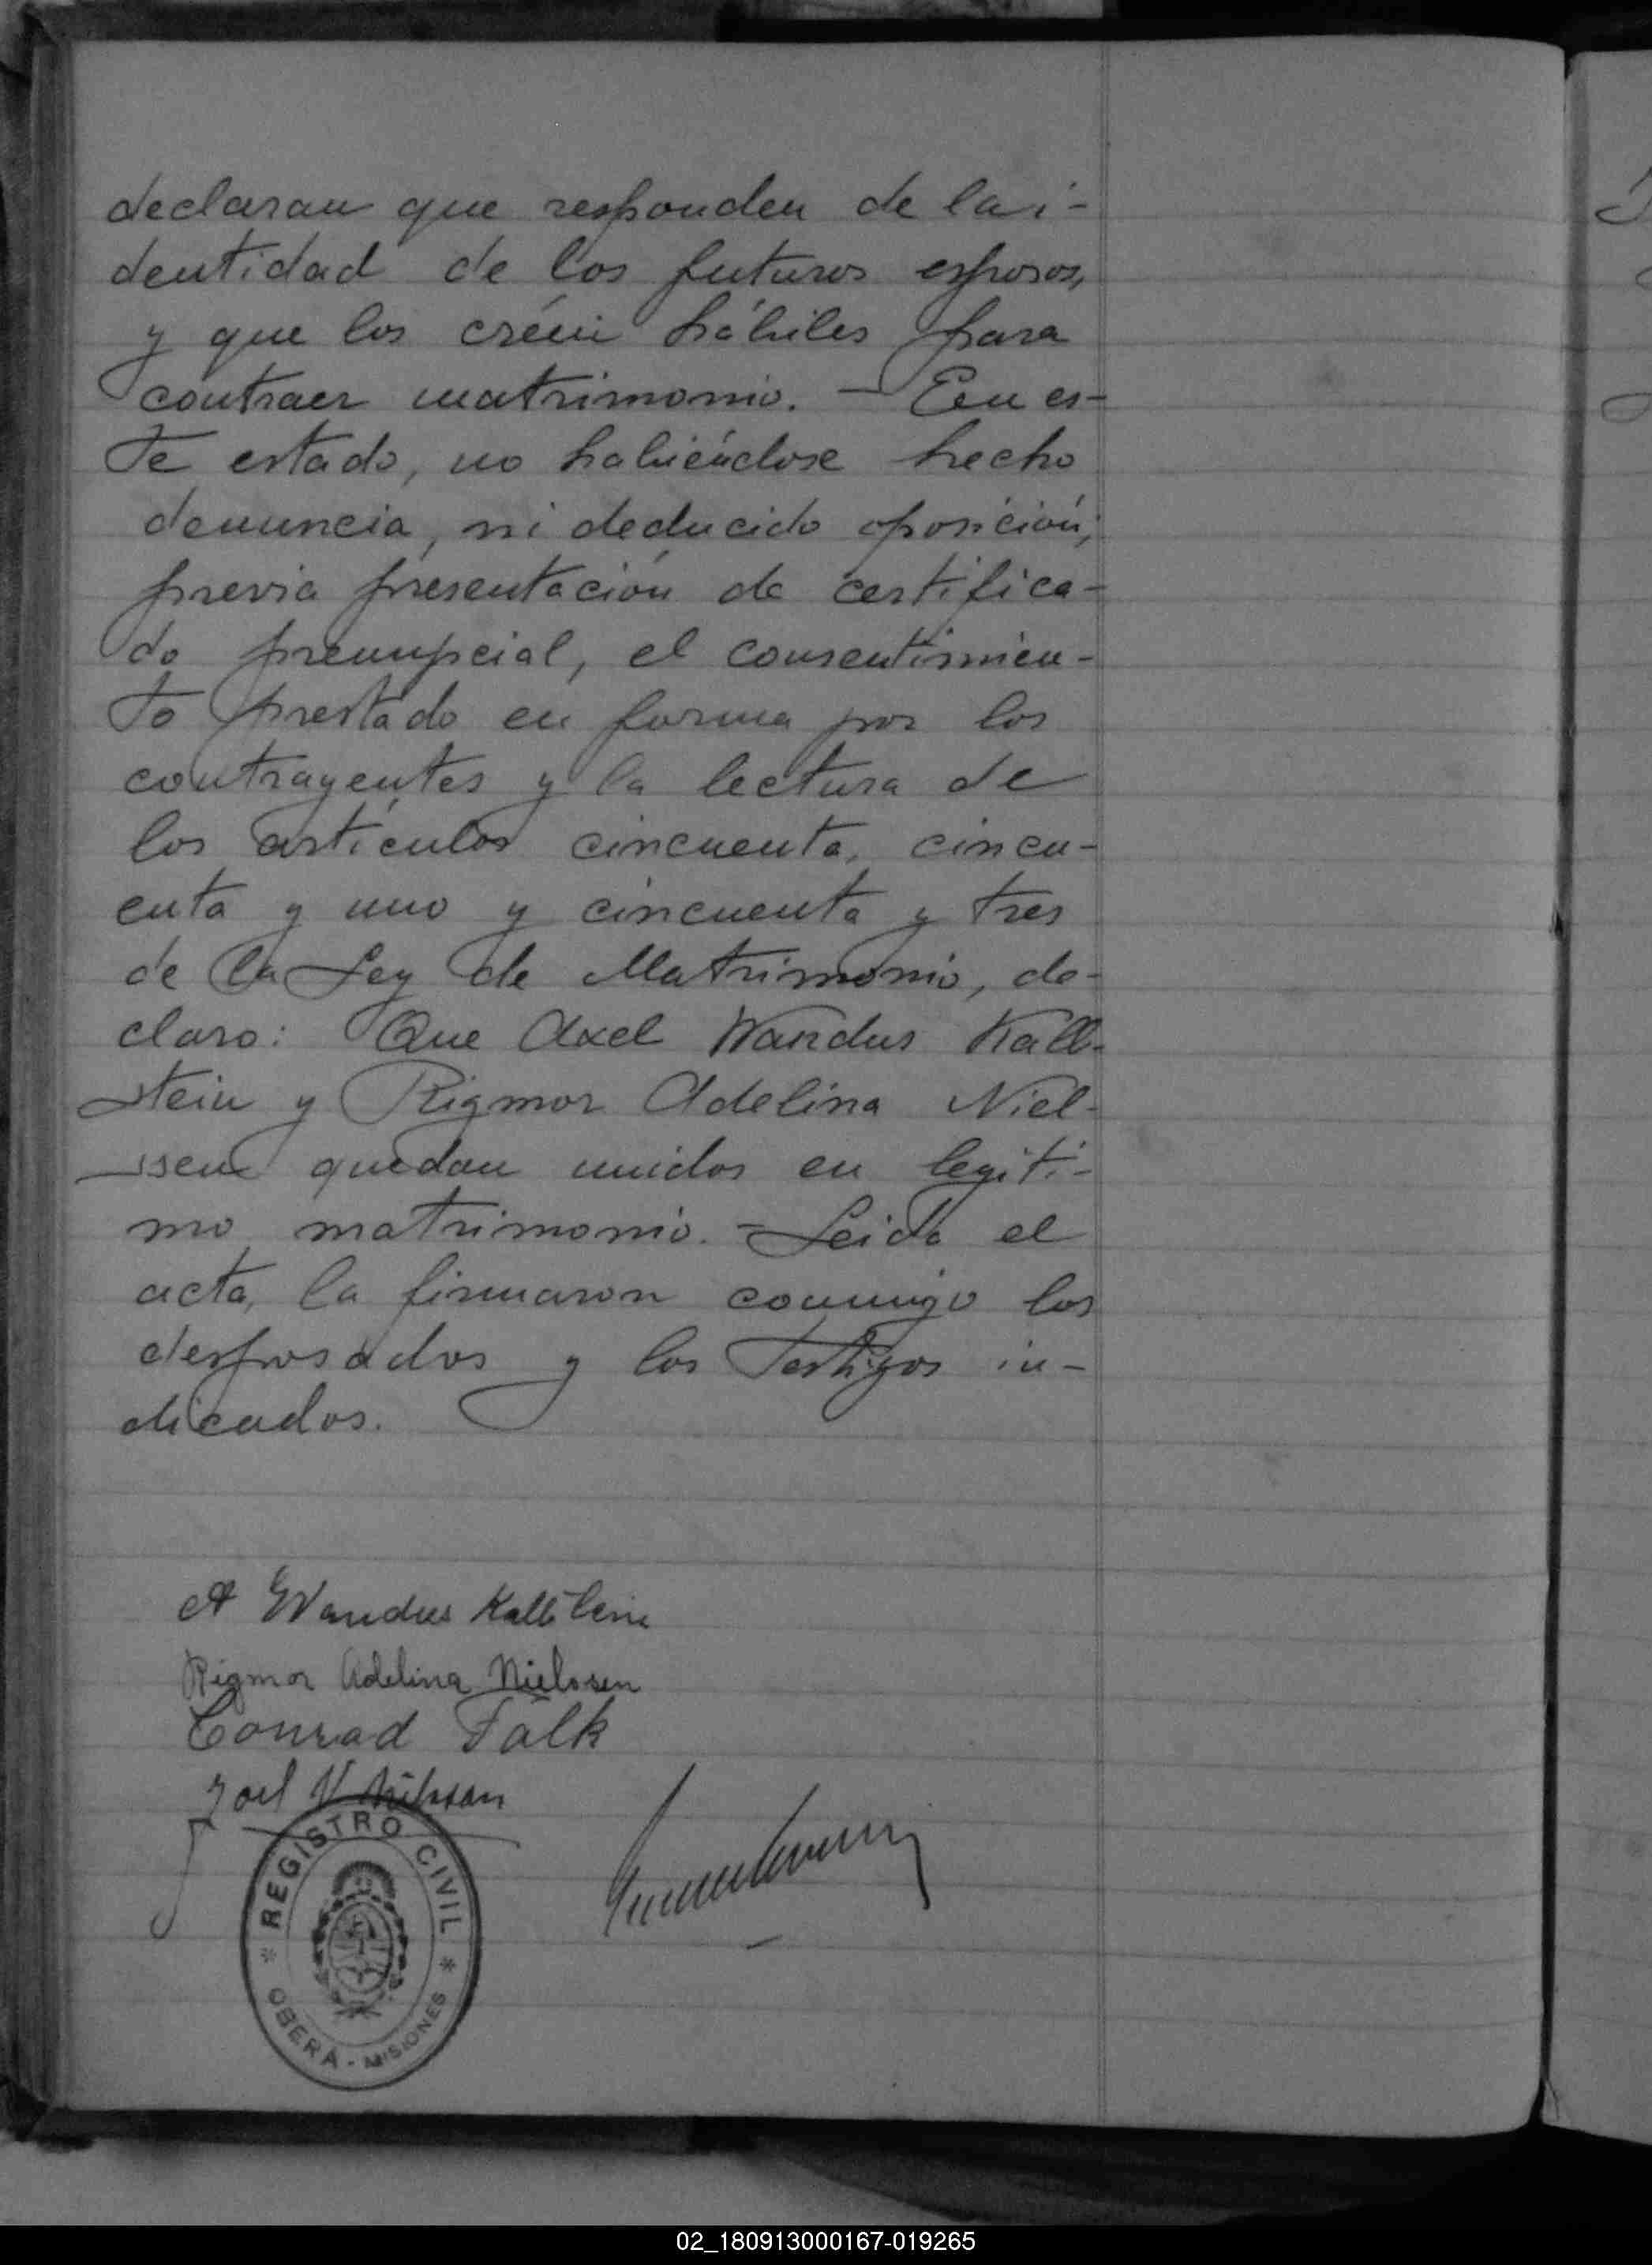 declaran que responden de la i-
dentidad de los futuros esposos,
y que los créen hábiles para
contraer matrimonio. — En es-
te estado, no habiéndose hecho
denuncia, ni deducido oposición;
previa presentación de certifica-
do prenupcial, el consentimien-
to prestado en forma por los
contrayentes y la lectura de
los artículos cincuenta, cincu-
enta y uno y cincuenta y tres
de la Ley de Matrimonio, de-
claro: Que Axel Wandus Kall-
stein y Rigmor Adelina Niel-
ssen quedan unidos en legiti-
mo matrimonio. = Leida el
acta, la firmaron conmigo los
desposados y los testigos in-
dicados.
A Wandus Kallstein
Rigmor Adelina Nielssen
Conrad Falk
Joel
REGISTRO CIVIL
OBERA - MISIONES
02_180913000167-019265